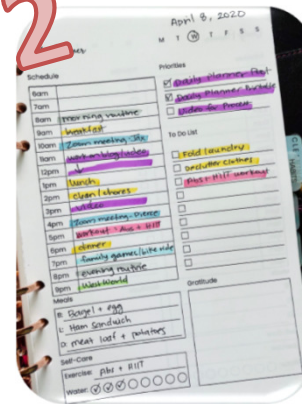 2
April 8, 2020
M T W T F S S
Schedule
6am
7am
8am morning routine
9am breakfast
10am Zoom meeting July
11am work on blog/video
12pm
1pm lunch
2pm clean/chores
3pm video
4pm Zoom meeting - Dierre
5pm workout - Abs + HIIT
6pm dinner
7pm family games/bike ride
8pm evening routine
9pm WestWorld
Meals
B: Bagel + egg
L: Ham Sandwich
D: meat loaf + potatoes
Self-Care
Exercise: Abs + HIIT
Water:
Priorities
Daily Planner Post
Daily Planner Bundle
Video for Process
To Do List
Fold laundry
Declutter clothes
Abs + HIIT workout
Gratitude